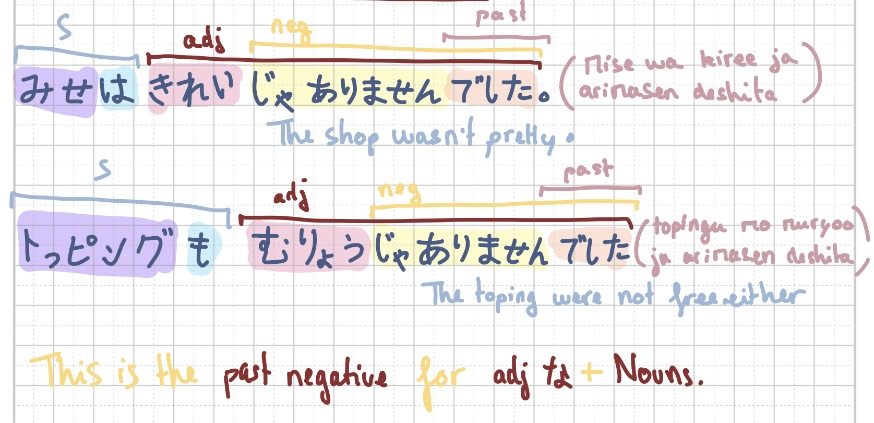 past
S adj neg
みせは きれい じゃ ありません でした。 (Mise wa kiree ja
arimasen deshita)
The shop wasn't pretty.
S past
adj neg
トっピング も むりょう じゃ ありません でした (topingu mo muryoo
ja arimasen deshita)
The toping were not free either
This is the past negative for adj な + Nouns.